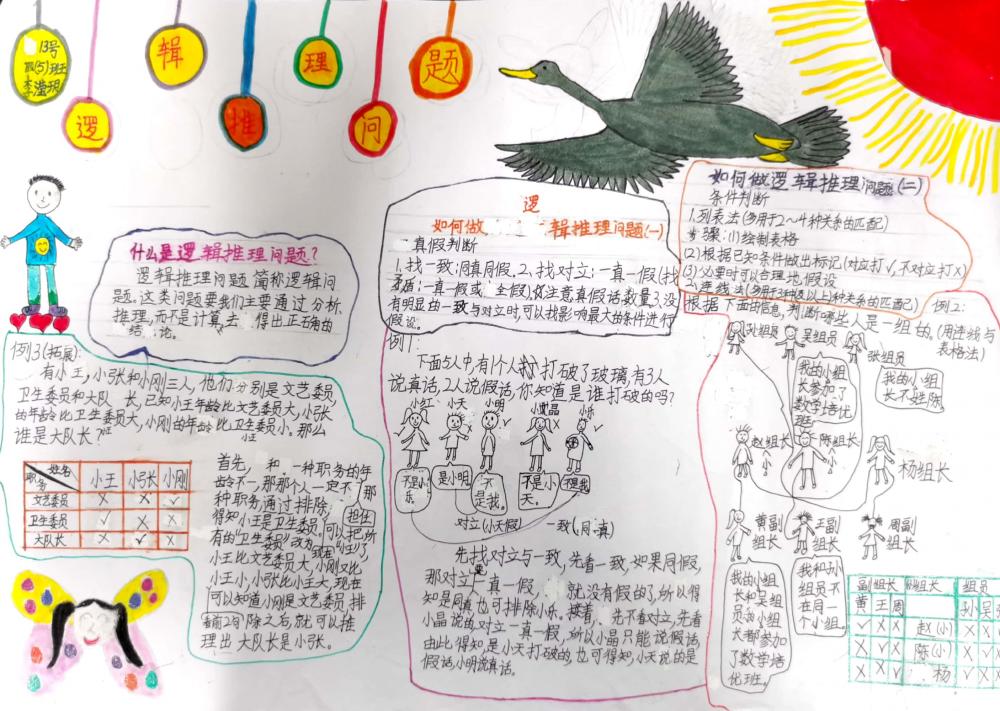 13号
李滢玥
逻
辑
推
理
问
题
什么是逻辑推理问题?
逻辑推理问题简称逻辑问
题。这类问题要我们主要通过分析、
推理,而不是计算去 得出正确的
结论。
逻
如何做 辑推理问题(一)
真假判断
1、找一致:同真同假。2、找对立:一真一假(找
矛盾:一真一假或 全假)。注意真假话数量3、没
有明显的一致与对立时,可以找影响最大的条件进行
假设。
如何做逻辑推理问题(二)
条件判断
1.列表法(多用于2~4种关系的匹配)
步骤:(1)绘制表格
(2)根据已知条件做出标记(对应打√,不对应打×)
(3)必要时可以合理地假设
2、连线法(多用于3种及以上)种关系的匹配)
例2:
根据下面的信息,判断哪些人是一组的。(用连线与
表格法)
孙组员
吴组员
张组员
我的小组
长参加了
数学培优
班
我的小组
长不姓陈
赵组长
小
陈组长
小
杨组长
黄副
组长
王副
组长
周副
组长
我的小组
长和吴组
员的小组
长都参加
了数学培
优班。
我和孙
组员不
在同一
个小组。
副组长 组长 组员
黄 王 周 孙 吴
√ × × 赵(小) × ×
× √ × 陈(小) × √
× × √ 杨 √ ×
例3(拓展):
有小王,小张和小刚三人,他们分别是文艺委员,
卫生委员和大队长,已知小王年龄比文艺委员大,小张
的年龄比卫生委员大,小刚的年龄比卫生委员小。那么
小王
谁是大队长?
姓名
职务
小王 小张 小刚
文艺委员 × × √
卫生委员 √ × ×
大队长 × √ ×
首先, 和一种职务的年
龄不一,那那个人一定不
那
种职务,通过排除,
担任
得知小王是卫生委员。可以把所
有的“卫生委员”改为“小王”,现在
小王比文艺委员大,小刚又比
小王小,小张比小王大,现在
可以知道小刚是文艺委员,排
除之后,就可以推
理出大队长是小张。
例1:
下面5人中,有个人打破了玻璃,有3人
说真话,2人说假话,你知道是谁打破的吗?
小红
小天
小明
小晶
小乐
不是小
乐。
是小明
不
是我。
不是小
天。
不是我
对立(小天假)
一致(同真)
先找对立与一致,先看一致,如果同假,
那对立一真一假, 就没有假的了,所以得
知是同真,也可排除小乐。接着, 先不看对立,先看
小晶说的对立一真一假,所以小晶只能说假话,
由此得知,是小天打破的,也可得知,小天说的是
假话,小明说真话。